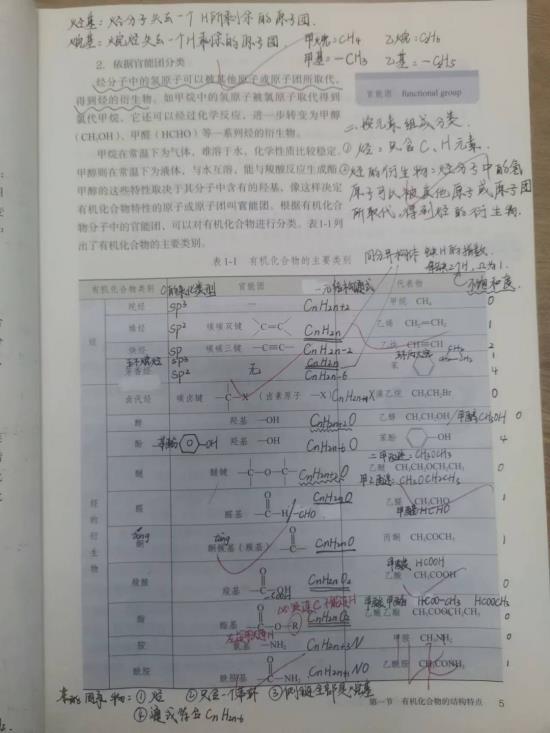 烃基：烃分子失去一个H所剩余的原子团.
烷基：烷烃失去一个H剩余的原子团.
甲烷=CH4 乙烷=C2H6
甲基=-CH3 乙基=-C2H5
2. 依据官能团分类
烃分子中的氢原子可以被其他原子或原子团所取代，
得到烃的衍生物。如甲烷中的氢原子被氯原子取代得到
氯代甲烷，它还可以经过化学反应，进一步转变为甲醇
(CH3OH)、甲醛（HCHO）等一系列烃的衍生物。
甲烷在常温下为气体，难溶于水，化学性质比较稳定，
甲醇则在常温下为液体，与水互溶，能与羧酸反应生成酯，
甲醇的这些特性取决于其分子中含有的羟基。像这样决定
有机化合物特性的原子或原子团叫官能团。根据有机化合
物分子中的官能团，可以对有机化合物进行分类。表1-1列
出了有机化合物的主要类别。
官能团 functional group
二.按元素组成分类.
① 烃：只含C、H元素.
② 烃的衍生物：烃分子中的氢
原子可以被其他原子或原子团
所取代，得到烃的衍生物.
同分异构体
不饱和度.
表1-1 有机化合物的主要类别
有机化合物类别 C的杂化类型 官能团 代表物
烃
烷烃 sp3 — CnH2n+2 甲烷 CH4 0
烯烃 sp2 碳碳双键 C=C CnH2n 乙烯 CH2=CH2 1
炔烃 sp 碳碳三键 —C≡C— CnH2n-2 乙炔 CH≡CH 2
sp3 CnH2n 环丙烷 1
芳香烃 sp2 无 CnH2n-6 苯 4
烃的衍生物
卤代烃 碳卤键 —C—X （卤素原子 —X） 溴乙烷 CH3CH2Br 0
醇 羟基 —OH CnH2n+2O 乙醇 CH3CH2OH/甲醇CH3OH 0
酚 苯酚 —OH 羟基 —OH CnH2n-6O 苯酚 —OH 4
二甲醚：CH3OCH3
醚 醚键 —C—O—C— CnH2n+2O 乙醚 CH3CH2OCH2CH3 0
甲乙醚：CH3OCH2CH3
醛 醛基 O —C—H/-CHO CnH2nO 乙醛 CH3CHO 1
甲醛HCHO
tóng
酮 酮羰基（羰基） O —C— CnH2nO 丙酮 CH3COCH3 1
tāng
甲酸 HCOOH
羧酸 羧基 O —C—OH -COOH CnH2nO2 乙酸 CH3COOH
甲酸甲酯 HCOO-CH3 HCOOCH3
酯 酯基 O —C—O—R CnH2nO2 乙酸乙酯 CH3COOCH2CH3
胺 氨基 —NH2 CnH2n+3N 甲胺 CH3NH2 0
酰胺 酰胺基 O —C—NH2 CnH2n+1NO 乙酰胺 CH3CONH2 1
苯的同系物：① 烃 ② 只含一个苯环 ③ 侧链全部是烷基
④ 通式符合CnH2n-6
第一节 有机化合物的结构特点 5